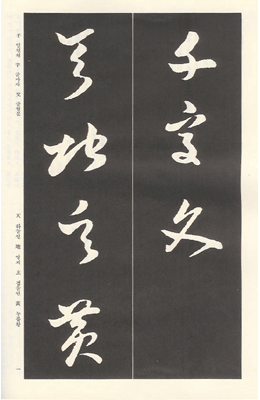 千字文
天地玄黃
千 일천천 字 글자자 文 글월문
天 하늘천 地 땅지 玄 검을현 黃 누를황
一